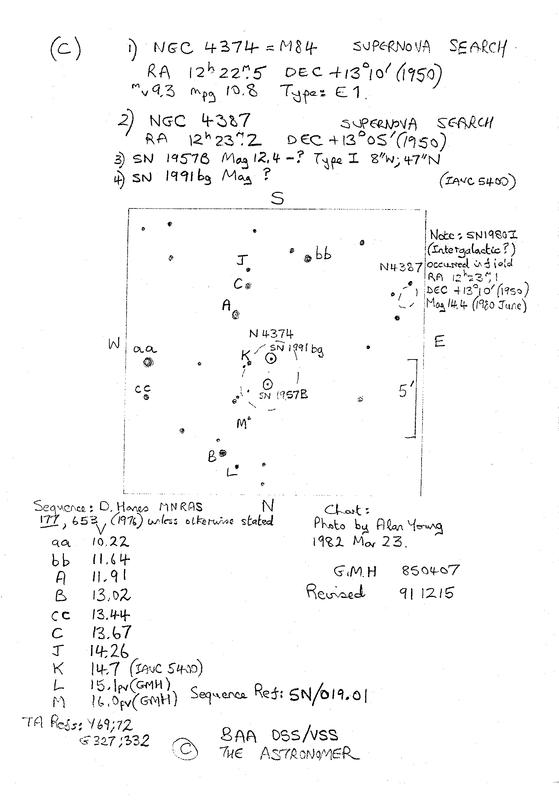 (C) 1) NGC 4374 = M84 SUPERNOVA SEARCH
RA 12h 22m.5 DEC +13°10' (1950)
mv 9.3 mpg 10.8 Type: E1.
2) NGC 4387 SUPERNOVA SEARCH
RA 12h 23m.2 DEC +13°05' (1950)
3) SN 1957B Mag 12.4 -? Type I 8"W; 47"N
4) SN 1991bg Mag ? (IAUC 5400)
S
Note: SN1980I
(Intergalactic?)
occurred in field
RA 12h 23m.1
DEC +13°10' (1950)
Mag 14.4 (1980 June)
bb
J
N4387
C
A
N4374
W
aa
SN 1991bg
K
E
cc
SN 1957B
5'
M
B
L
N
Sequence: D. Hanes MNRAS
177, 653, (1976) unless otherwise stated
V
aa 10.22
bb 11.64
A 11.91
B 13.02
cc 13.44
C 13.67
J 14.26
K 14.7 (IAUC 5400)
L 15.1pv (GMH)
M 16.0pv (GMH)
Chart:
Photo by Alan Young
1982 Mar 23.
G.M.H 850407
Revised 911215
Sequence Ref: SN/019.01
TA Refs: Y69;72
G327;332
© BAA DSS/VSS
THE ASTRONOMER